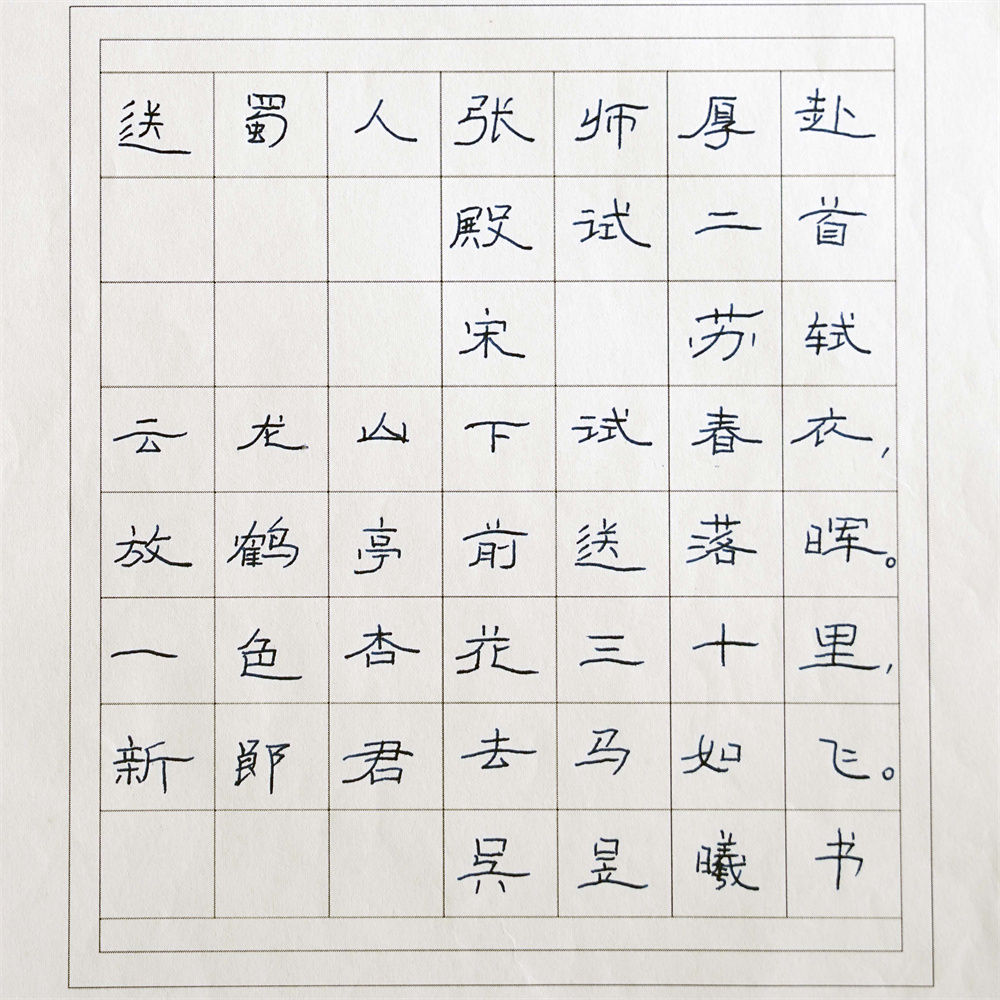 送蜀人张师厚赴
殿试二首
宋 苏轼
云龙山下试春衣,
放鹤亭前送落晖。
一色杏花三十里,
新郎君去马如飞。
吴昱曦书